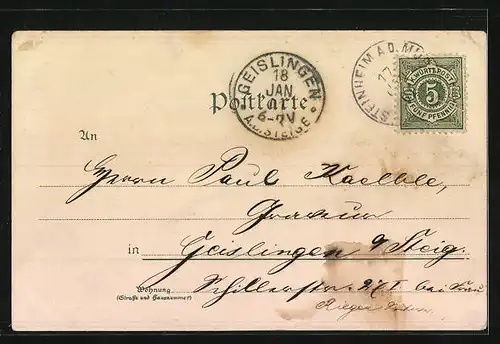 STEINHEIM A.D. MU
17
K. WÜRTT. POST
5
FÜNF PFENNIG
GEISLINGEN
18
JAN
6-7V
A.D. STEIGE
Postkarte
An
Herrn Paul Kaelble,
Graveur
in Geislingen a/Steig.
Wohnung
(Straße und Hausnummer)
Schillerstr. bei Frau